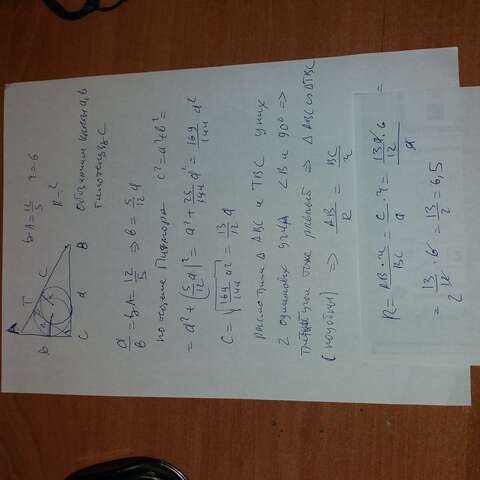 tg A = 12/5 r = 6
R - ?
Обозначим катеты a, b
гипотенуза c
A T C B
b C a
a/b = tg A = 12/5 ⇒ b = 5/12 a
по теореме Пифагора c² = a² + b² =
= a² + (5/12 a)² = a² + 25/144 a² = 169/144 a²
c = √(169/144 a²) = 13/12 a
рассмотрим △ABC и TBC у них
2 одинаковых угла ∠B и 90° ⇒
третьи углы тоже равны ⇒ △ABC ∞ △TBC
(подобны) ⇒ AB/R = BC/r
R = AB · r / BC = c · r / a = 13a · 6 / 12 / a =
= 13/12 · 6 = 13/2 = 6,5